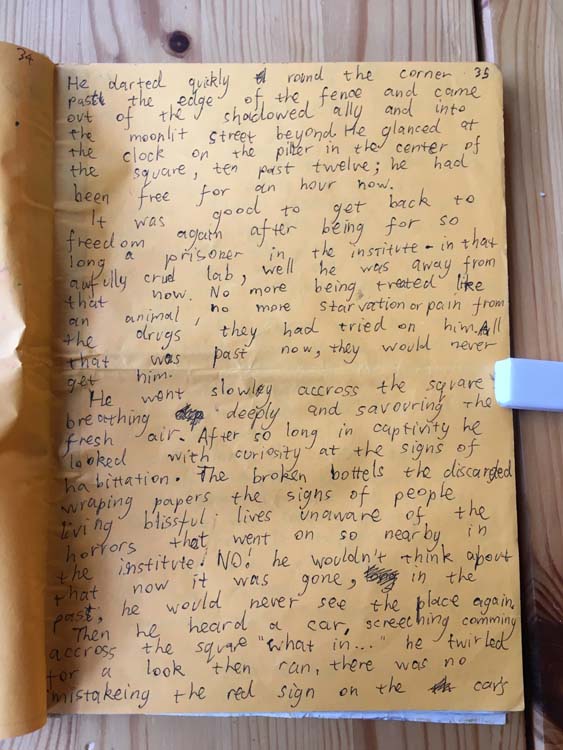 34
35
He darted quickly round the corner
past the edge of the fence and came
out of the shadowed ally and into
the moonlit street beyond. He glanced at
the clock on the piller in the center of
the square, ten past twelve; he had
been free for an hour now.
It was good to get back to
freedom again after being for so
long a prisoner in the institute - in that
awfully crul lab, well he was away from
that now. No more being treated like
an animal, no more starvation or pain from
the drugs they had tried on him. All
that was past now, they would never
get him.
He went slowley accross the square
breathing deeply and savouring the
fresh air. After so long in captivity he
looked with curiosity at the signs of
habittation. The broken bottels the discarded
wraping papers the signs of people
living blissful lives unaware of the
horrors that went on so nearby in
the institute! NO! he wouldn't think about
that now it was gone, in the
past, he would never see the place again.
Then he heard a car, screeching comming
accross the squrae "what in..." he twirled
for a look then ran, there was no
mistakeing the red sign on the cars